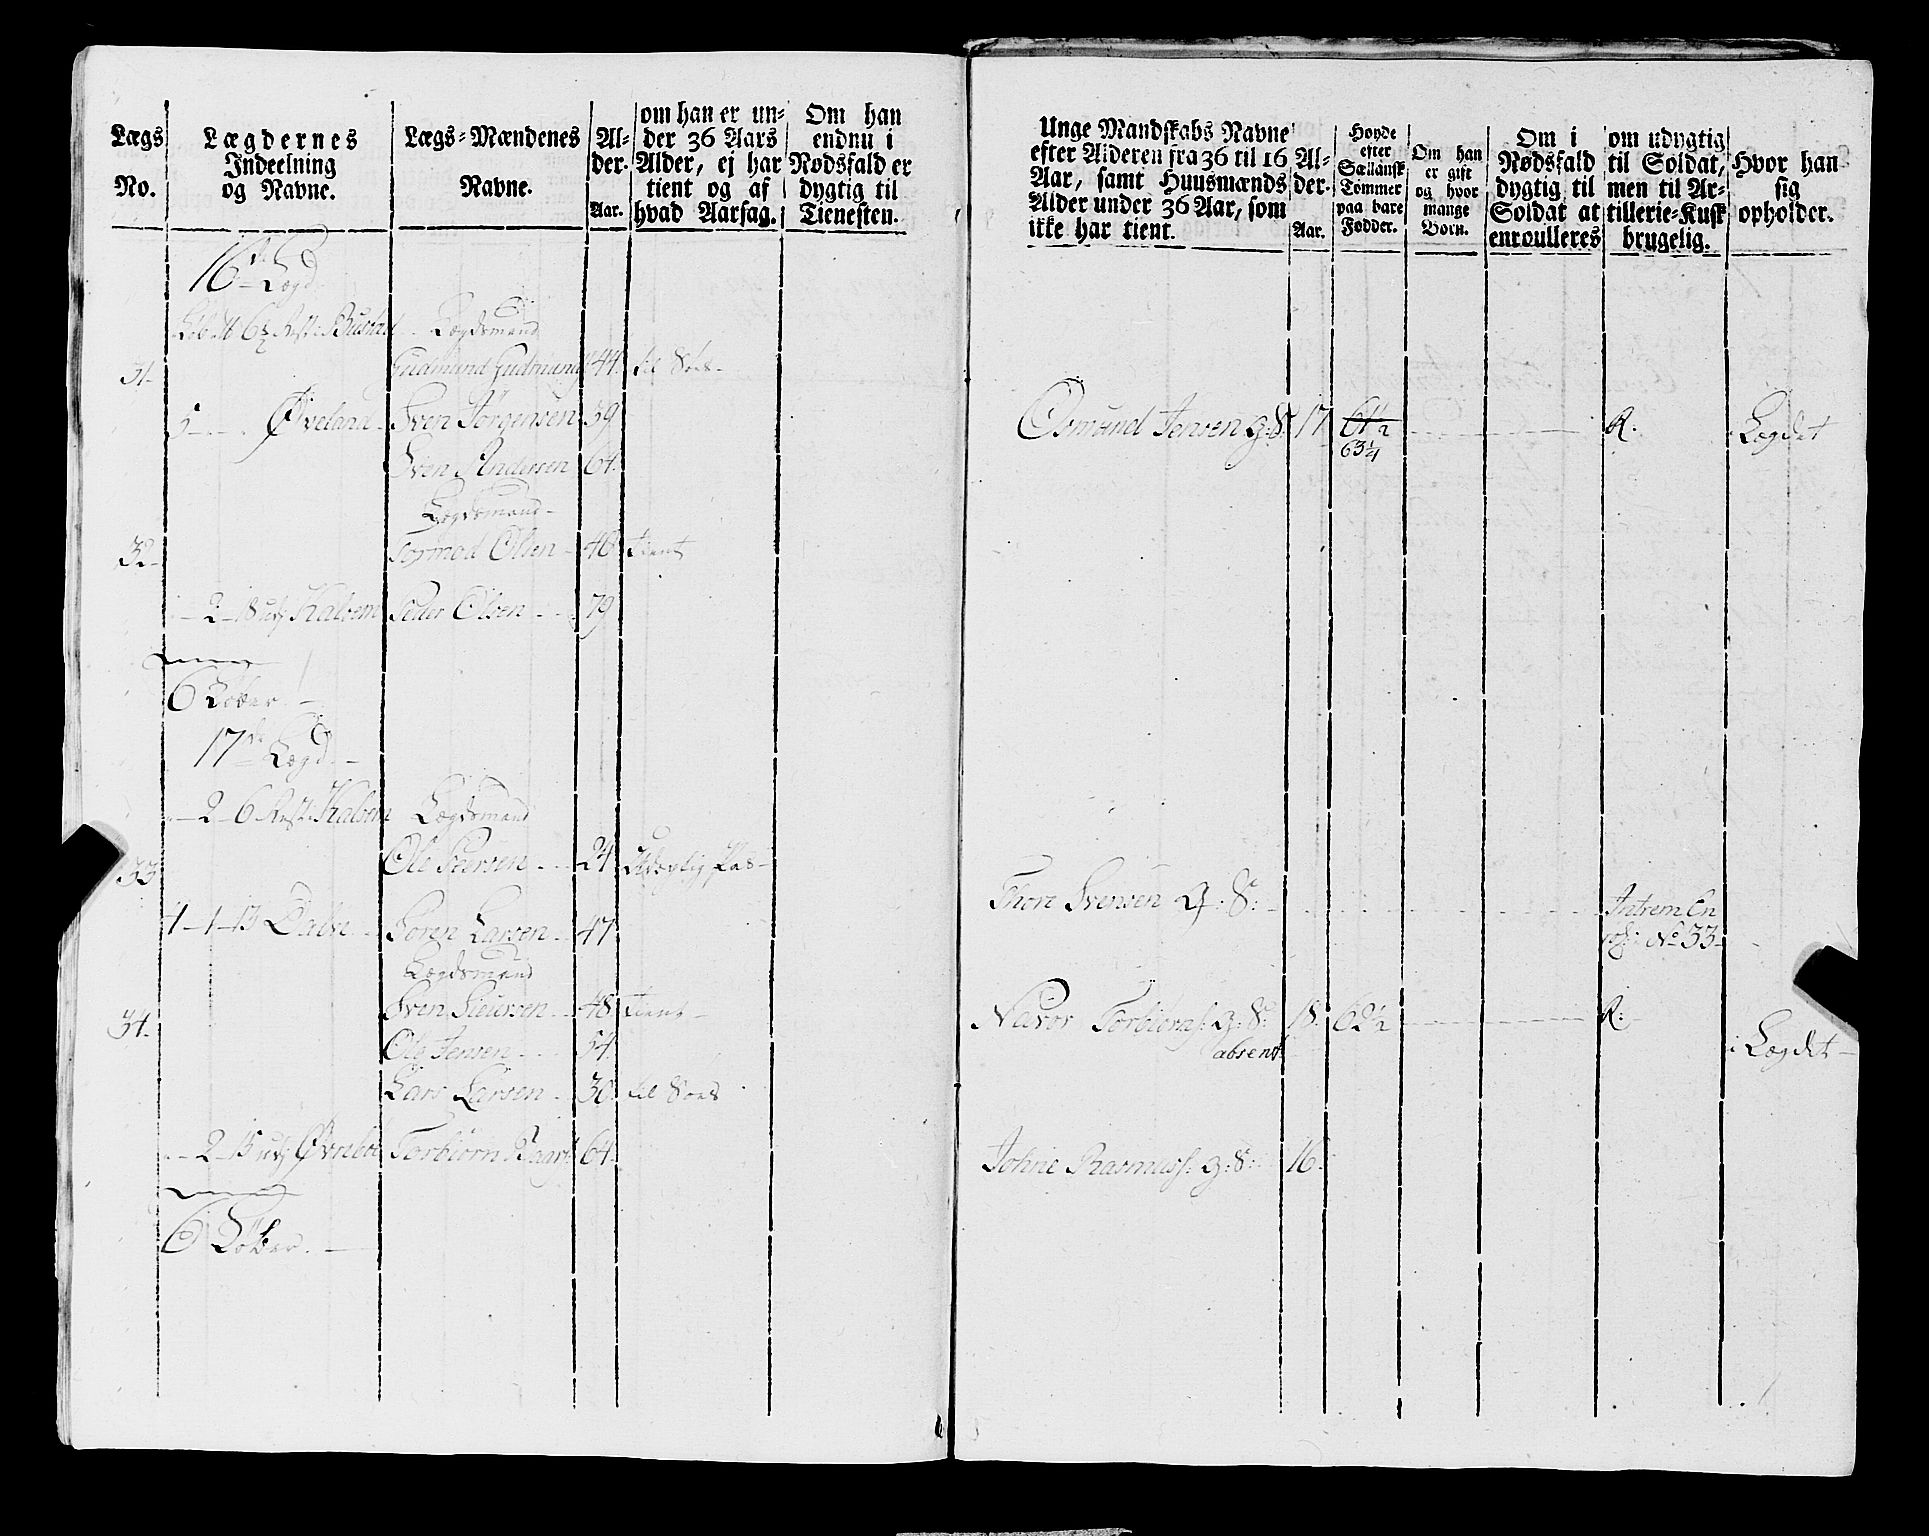 Lægs
No.
Lægdernes
Indeelning
og Navne.
Lægs-Mændenes
Navne.
Al-
der.
Aar.
om han er un-
der 36 Aars
Alder, ej har
tient og af
hvad Aarsag.
Om han
endnu i
Nødsfald er
dygtig til
Tienesten.
16de Lægd
6½ Bustad Lægdsmand
31 Gudmund 44 til Søes
5 Øveland Sven Jørgensen 39
Sven Andersen 64
Lægdsmand
32 Tormod Olsen 48 tient
2 18 Kalvem Peder Olsen 79
6 Løber
17de Lægd
2 6 Kalvem Lægdsmand
33 Ole Peersen 24
1 13 Dalve Søren Larsen 47
Lægdsmand
34 Sven Sieursen 48 tient
Ole Jensen 54
Lars Larsen 30 til Søes
2 15 Øvrebøe Torbiørn 64
6 Løber
Unge Mandskabs Navne
efter Alderen fra 36 til 16
Aar, samt Huusmænds
Alder under 36 Aar, som
ikke har tient.
Al-
der.
Aar.
Høyde
efter
Sællansk
Tommer
paa bare
Fødder.
Om han
er gift
og hvor
mange
Børn.
Om i
Nødsfald
dygtig til
Soldat at
enroulleres
om udygtig
til Soldat,
men til Ar-
tillerie-Kusk
brugelig.
Hvor han
sig
opholder.
Osmund Jensen g: S: 17 61½ R: i Lægdet
63¼
Thore Svensen g: S: Intrem En
No 33
Navor Torbiørns: g: S: 18 62½ R:
absent i Lægdet
Johne Rasmuss: g: S: 16